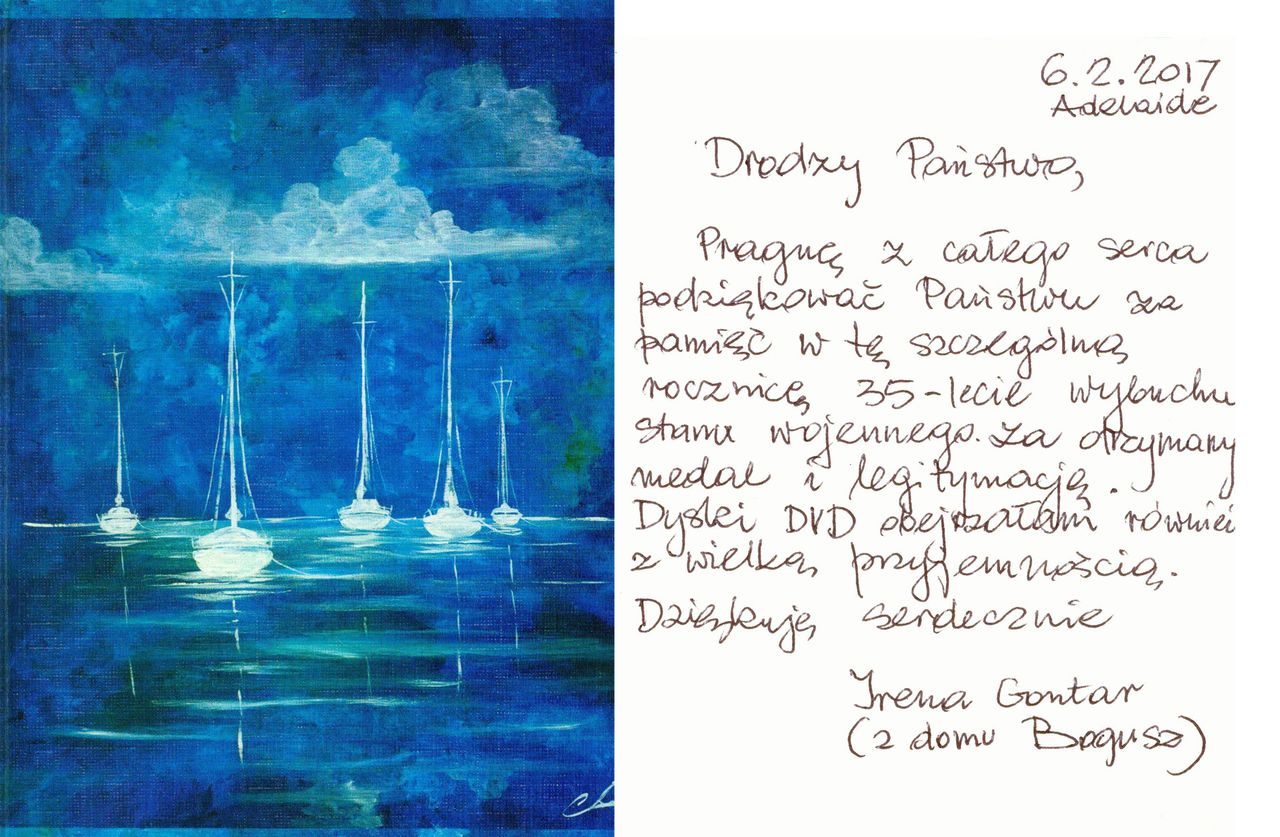 6.2.2017
Adelaide
Drodzy Państwo,
Pragnę z całego serca
podziękować Państwu za
pamięć w tę szczególną
rocznicę 35-lecie wybuchu
stanu wojennego. Za otrzymany
medal i legitymację.
Dyski DVD obejrzałam również
z wielką przyjemnością.
Dziękuję serdecznie
Irena Gontar
(z domu Bogusz)